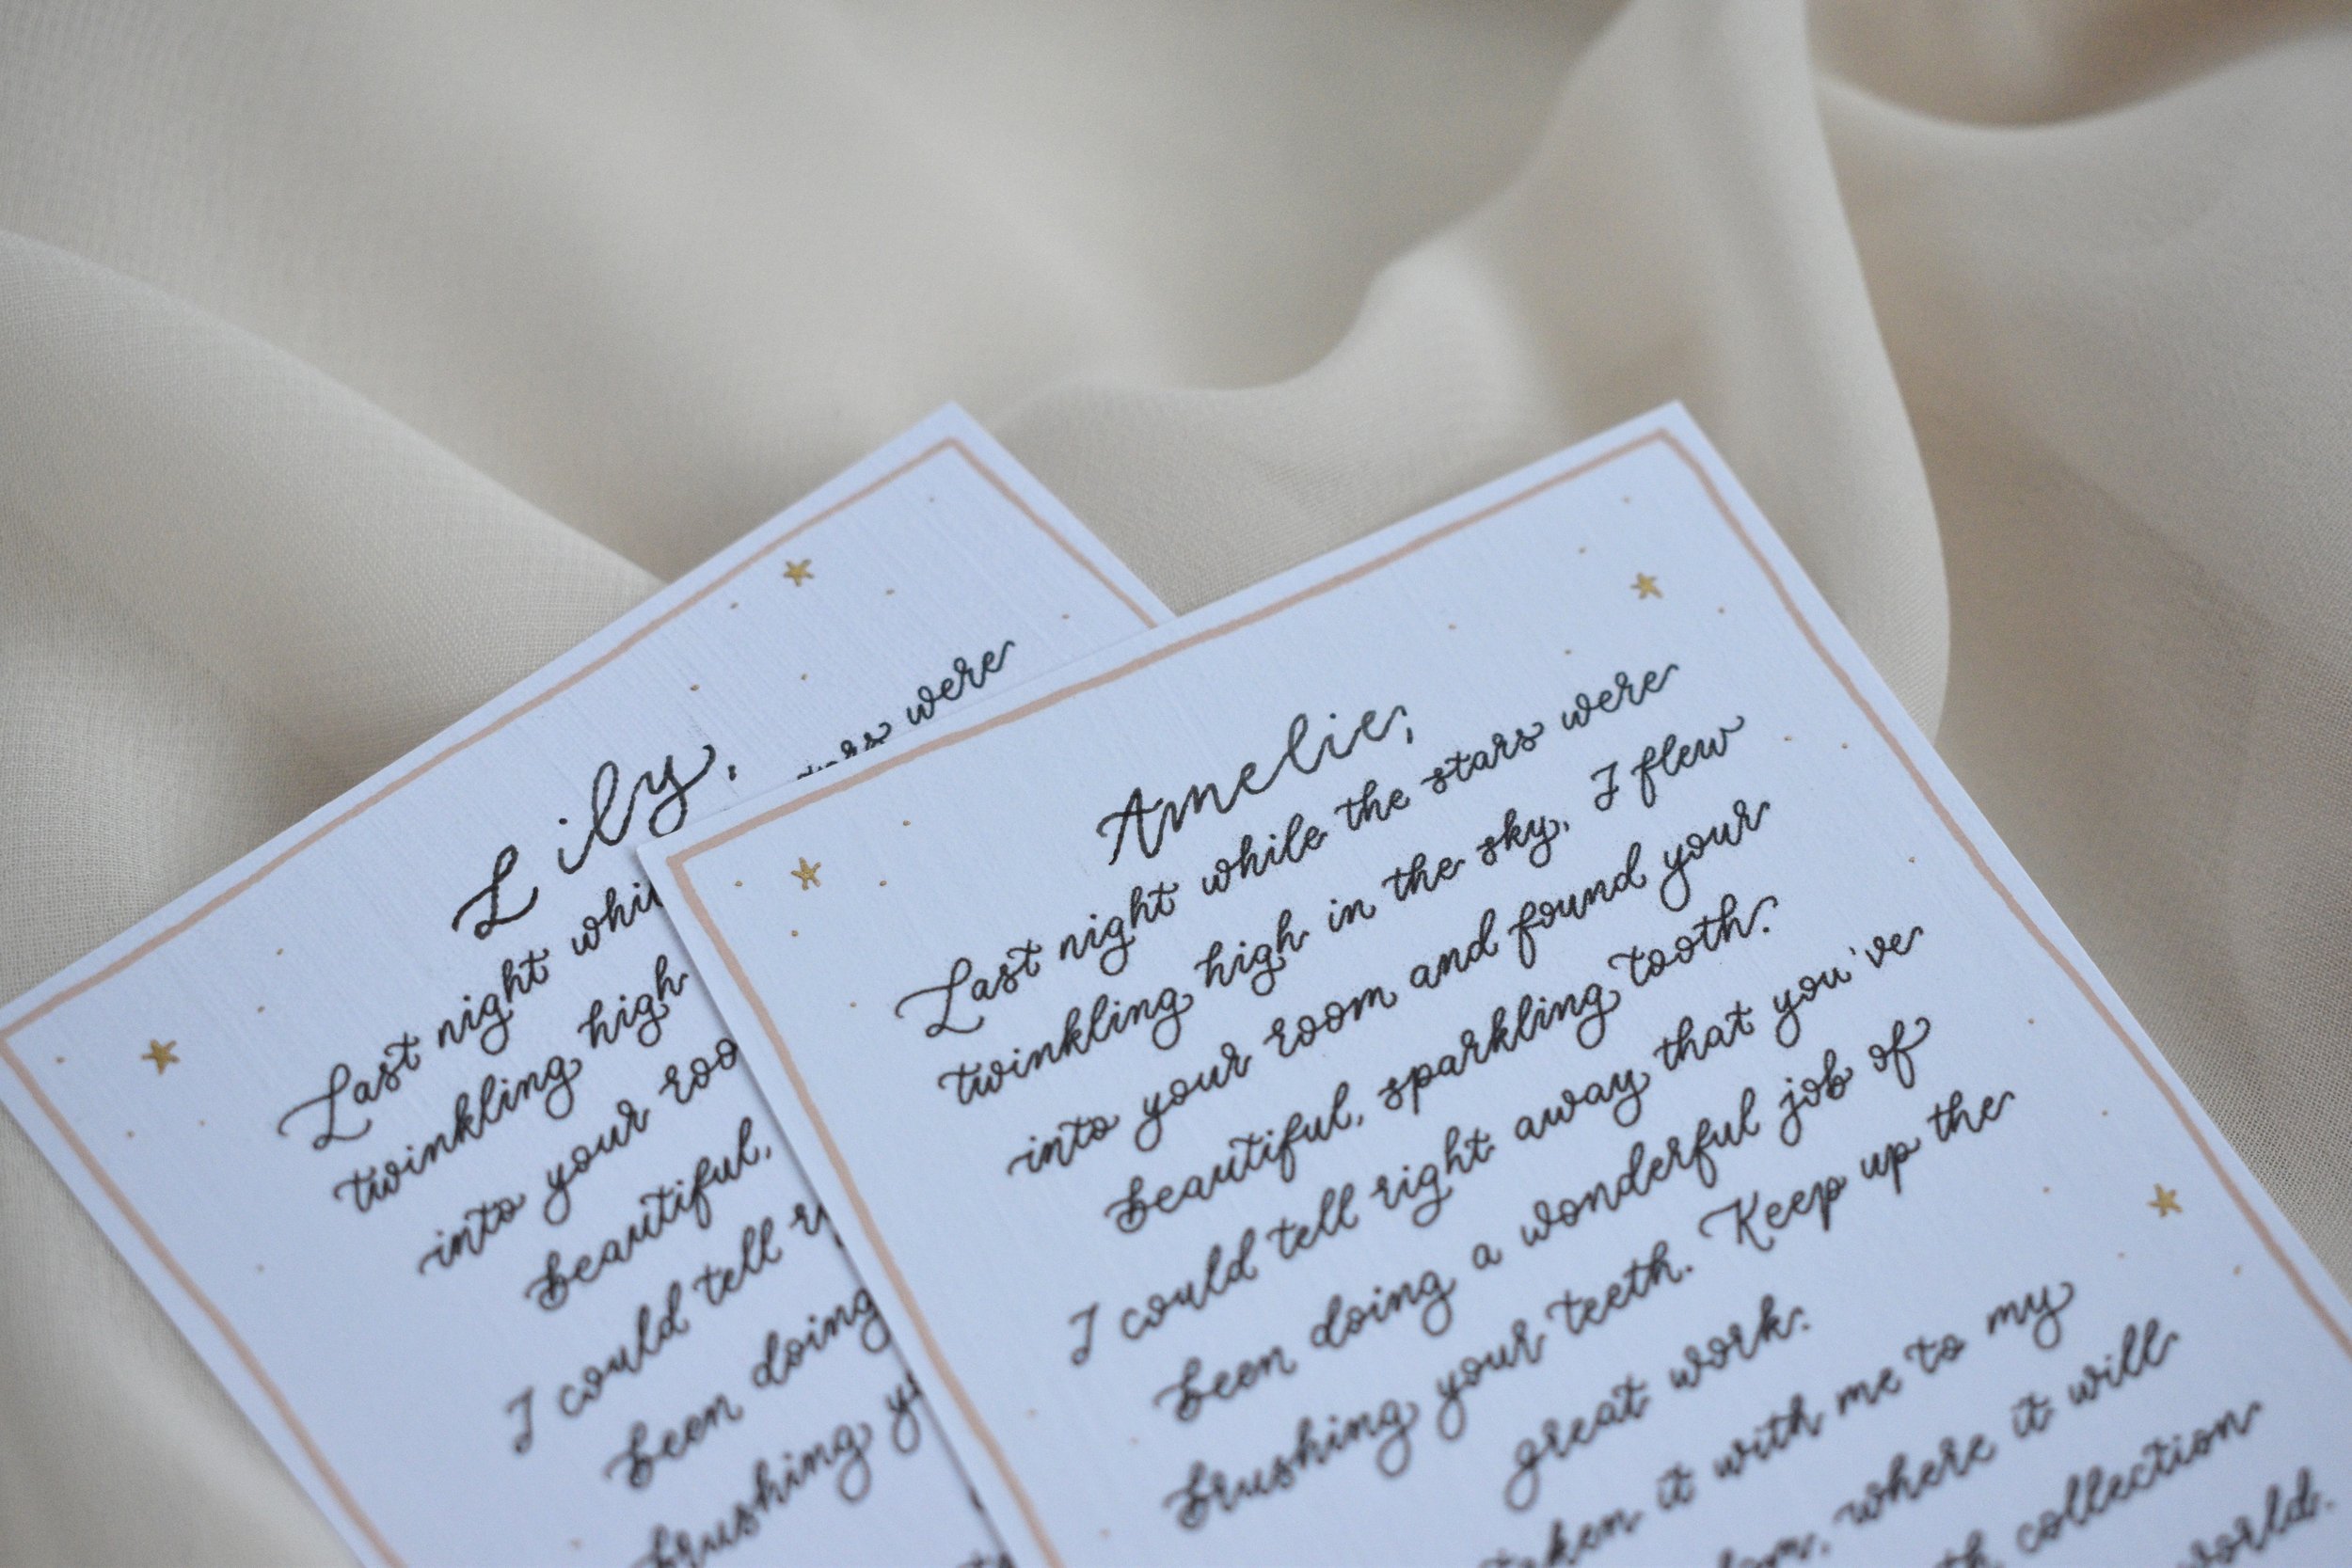 Lily,
were
Last night
twinkling high
into your
beautiful,
I could tell
been doing
brushing
Amelie,
Last night while the stars were
twinkling high in the sky, I flew
into your room and found your
beautiful, sparkling tooth.
I could tell right away that you've
been doing a wonderful job of
brushing your teeth. Keep up the
great work.
it with me to my
where it will
collection
world.